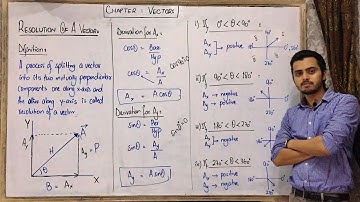 CHAPTER : VECTORS
RESOLUTION OF A VECTOR:
Definition:
A process of splitting a vector
into its two mutually perpendicular
components one along x-axis and
the other along y-axis is called
resolution of a vector.
Y
A
H
Ay = P
θ
X
B = Ax
Derivation for Ax:
cosθ = Base
Hyp
cosθ = Ax
A
Ax = A cosθ
Derivation for Ay:
sinθ = Per
Hyp
sinθ = Ay
A
Ay = A sinθ
i) If 0° < θ < 90°
Ax
Ay
→ positive
ii) If 90° < θ < 180°
Ax → negative
Ay → positive
iii) If 180° < θ < 270°
Ax
Ay
→ negative
iv) If 270° < θ < 360°
Ax → positive
Ay → negative